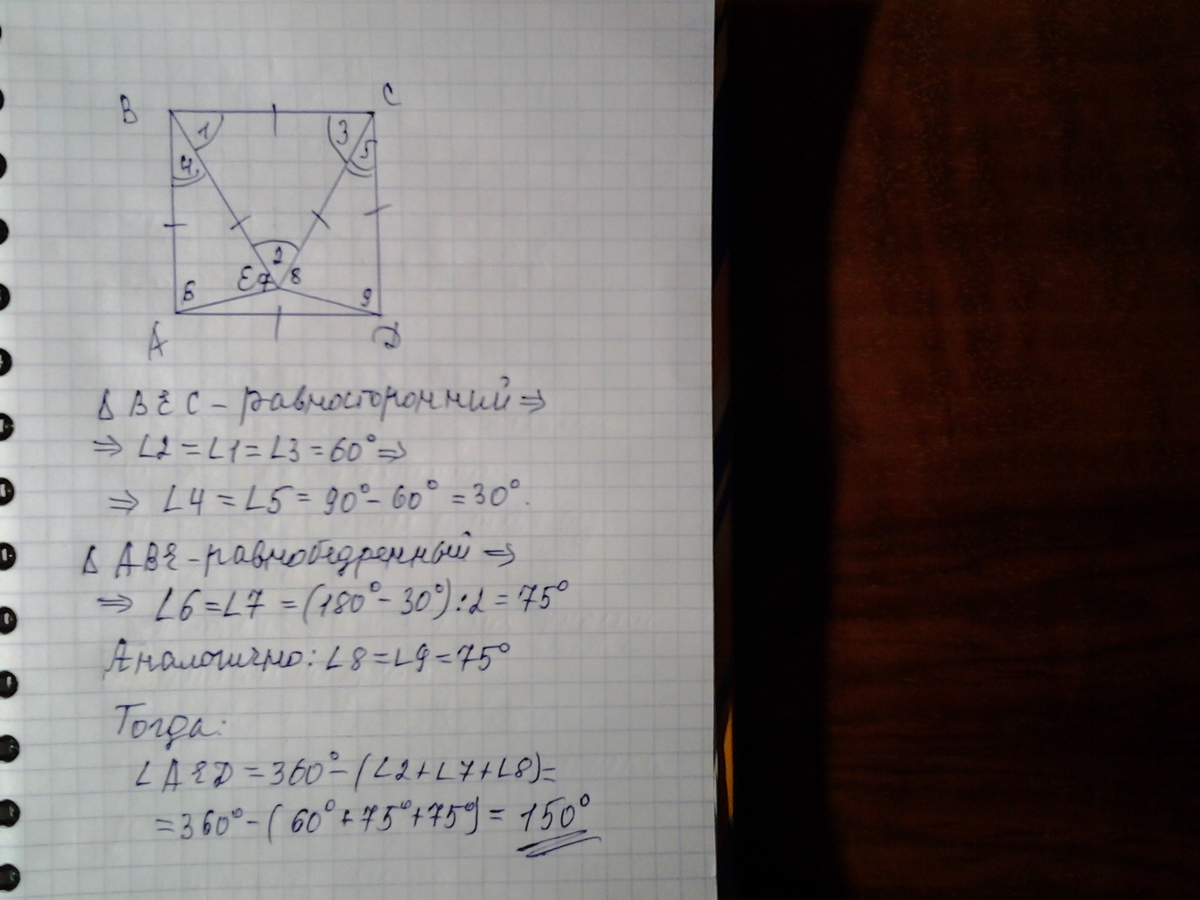 B C
1 3
4 5
2
E 7 8
6 9
A D
Δ BEC - равносторонний ⇒
⇒ ∠2 = ∠1 = ∠3 = 60° ⇒
⇒ ∠4 = ∠5 = 90° - 60° = 30°.
Δ ABE - равнобедренный ⇒
⇒ ∠6 = ∠7 = (180° - 30°) : 2 = 75°
Аналогично: ∠8 = ∠9 = 75°
Тогда:
∠AED = 360° - (∠2 + ∠7 + ∠8) =
= 360° - (60° + 75° + 75°) = 150°